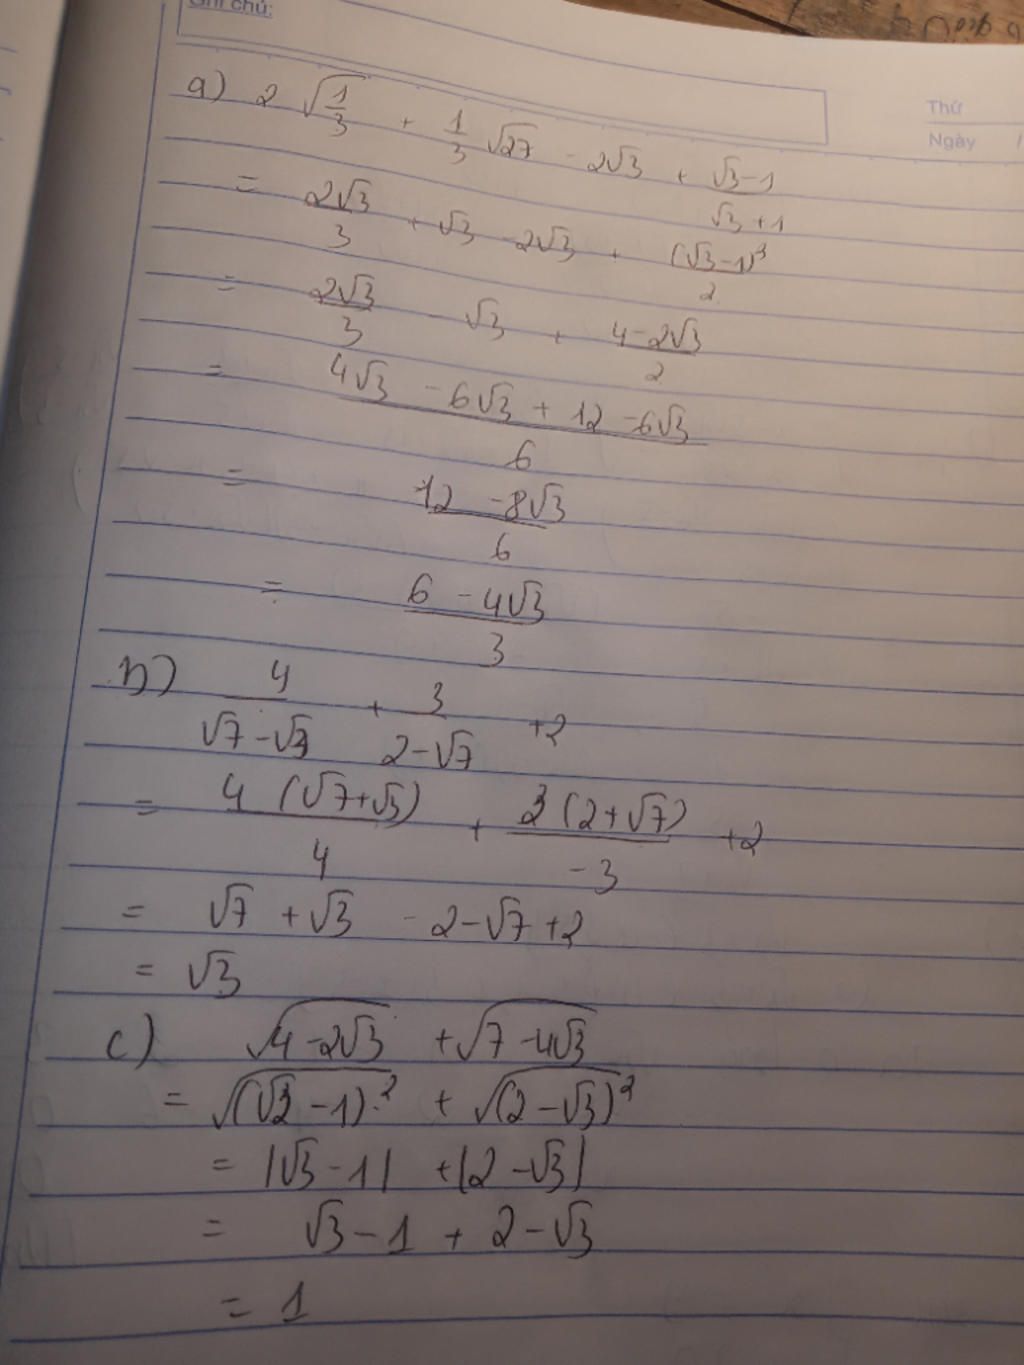 Ghi chú:
Thứ
Ngày /
a) 2 √(1/3) + 1/3 √27 - 2√3 + (√3-1)/(√3+1)
= 2√3/3 + √3 - 2√3 + (√3-1)²/2
= 2√3/3 - √3 + (4-2√3)/2
= (4√3 - 6√3 + 12 - 6√3)/6
= (12 - 8√3)/6
= (6 - 4√3)/3
b) 4/(√7-√3) + 3/(2-√7) +2
= 4(√7+√3)/4 + 3(2+√7)/-3 +2
= √7 + √3 - 2-√7 +2
= √3
c) √(4-2√3) + √(7-4√3)
= √((√3-1)²) + √((2-√3)²)
= |√3-1| + |2-√3|
= √3-1 + 2-√3
= 1